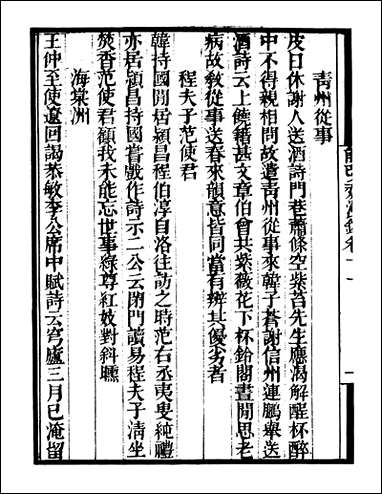 青州從事
皮日休謝人送酒詩門巷蕭條空紫苔先生應渴解酲杯醉
中不得親相問故遣靑州從事來韓子蒼謝信州連鵬舉送
酒詩云上饒籍甚文章伯曾共紫薇花下杯鈴閣晝閒思老
病故敎從事送春來韻意皆同當有辨其優劣者
程夫子范使君
韓持國閒居潁昌程伯淳自洛往訪之時范右丞夷叟純禮
亦居潁昌持國嘗戲作詩示二公云閉門讀易程夫子淸坐
焚香范使君顧我未能忘世事綠尊紅妓對斜曛
海棠洲
王仲至使遼回謁恭敏李公席中賦詩云穹廬三月已淹留
能改齋漫錄卷十一
一